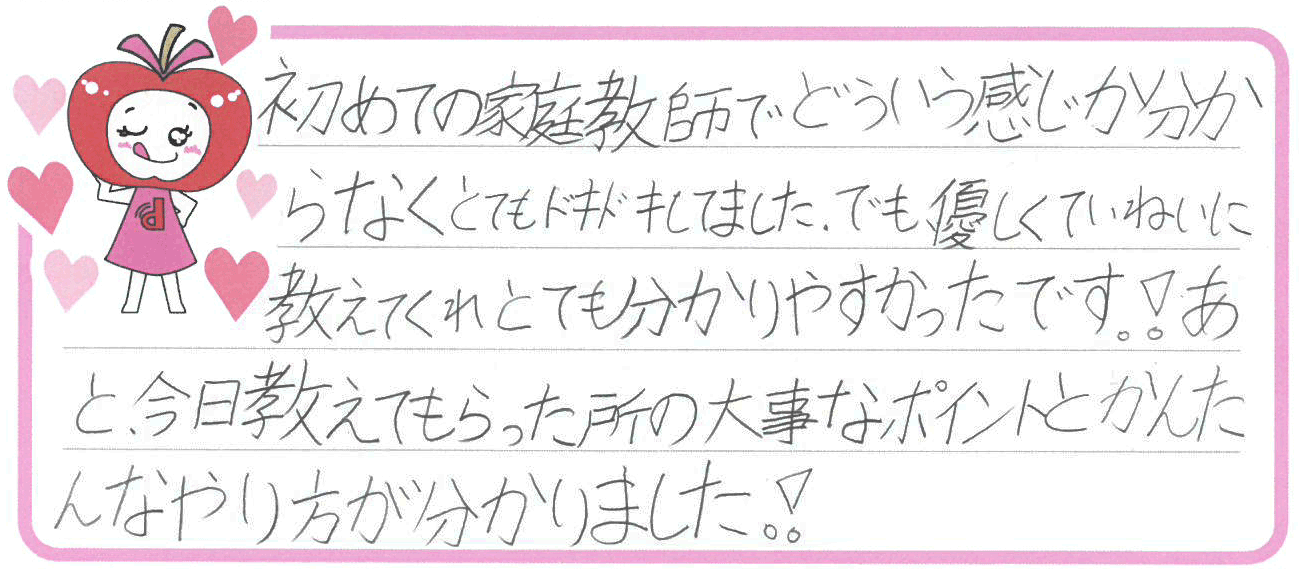 初めての家庭教師でどういう感じか分か
らなくとてもドキドキしてました。でも、優しくていねいに
教えてくれとても分かりやすかったです!!あ
と、今日教えてもらった所の大事なポイントとかんた
んなやり方が分かりました!!